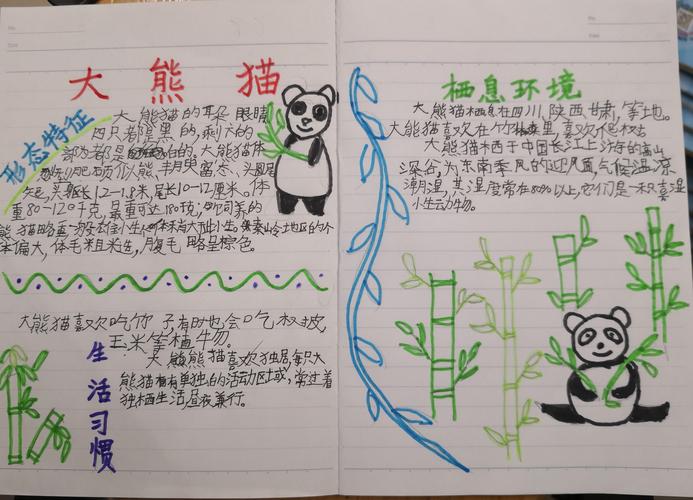 大熊猫
形态特征
大熊猫的耳朵 眼睛
四只都是黑的,剩下的
部分都是白的,大熊猫体
型肥硕似熊、丰
头躯长1.2-1.8米,尾长10-12厘米。体
重80-120千克,最重可达180
体偏大,体毛粗 腹毛略呈棕色。
大熊猫喜欢吃竹子,有时也会吃
玉米等植物。
大熊猫喜欢独居,每只大
熊猫有单独的活动区域,常过着
独栖生活,昼夜兼行。
生活习惯
栖息环境
大熊猫栖息在四川、陕西、甘肃,等地。
大熊猫喜欢在竹林里,喜欢
大熊猫西于中国长江上游的高山
深谷,为东南季风的迎风面,气候温凉
潮湿,其湿度常在80%以上,它们是一种喜湿
小生动物。